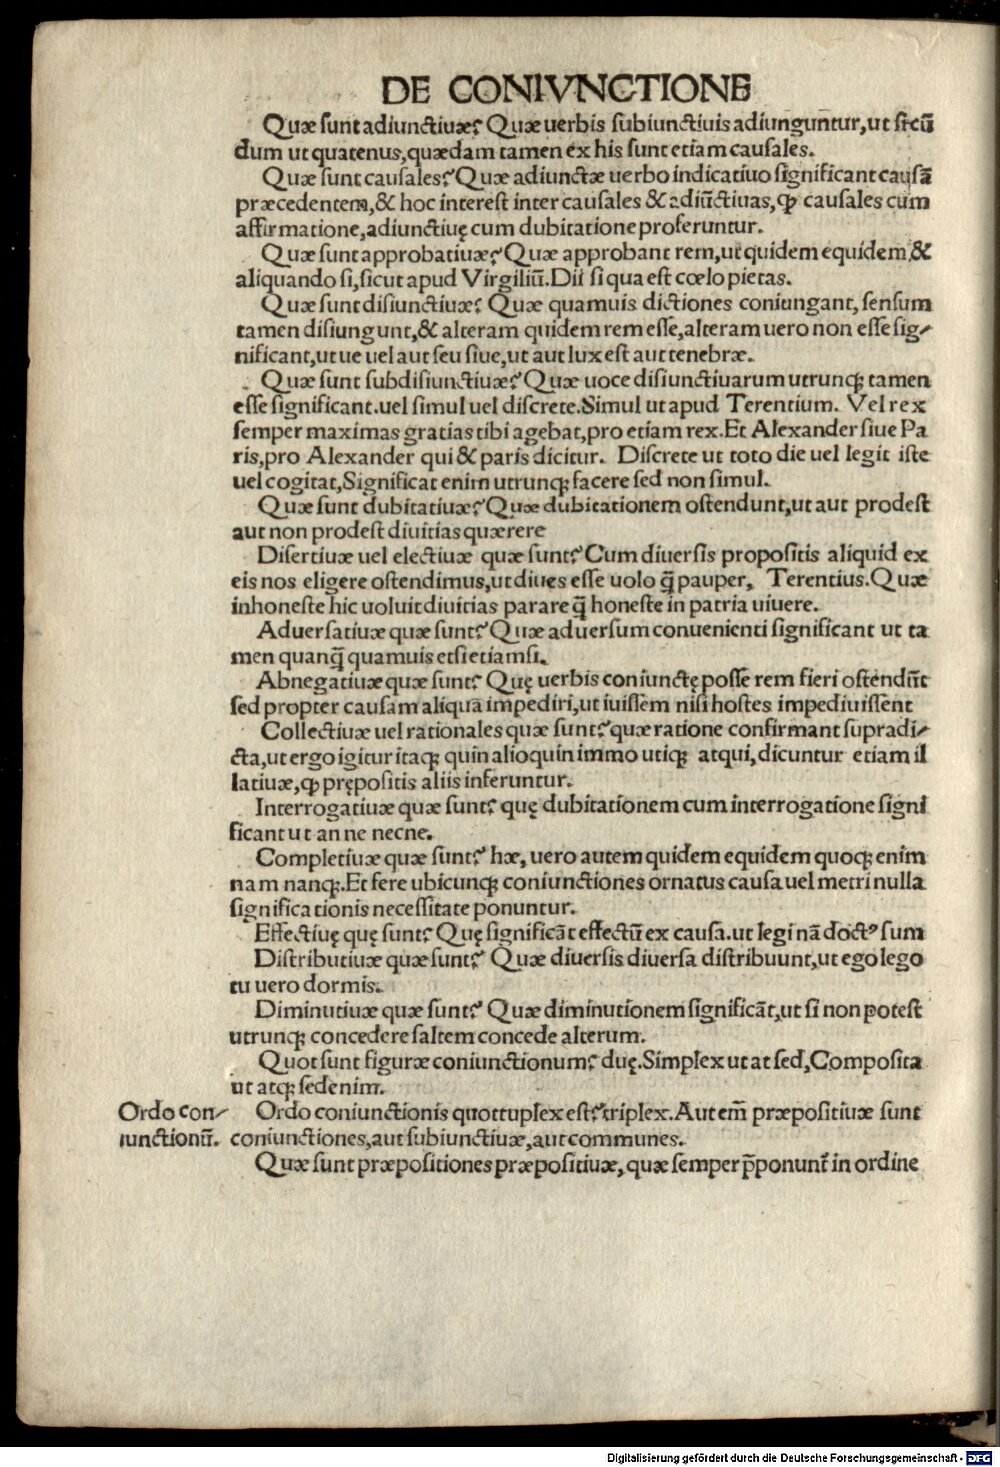 DE CONIVNCTIONE
Quæ sunt adiunctiuæ? Quæ uerbis subiunctiuis adiunguntur, ut si cū
dum ut quatenus, quædam tamen ex his sunt etiam causales.
Quæ sunt causales? Quæ adiunctæ uerbo indicatiuo significant causā
præcedentem, & hoc interest inter causales & adiūctiuas, ꝙ causales cum
affirmatione, adiunctiuę cum dubitatione proferuntur.
Quæ sunt approbatiuæ? Quæ approbant rem, ut quidem equidem, &
aliquando si, sicut apud Virgiliū. Dii si qua est cœlo pietas.
Quæ sunt disiunctiuæ? Quæ quamuis dictiones coniungant, sensum
tamen disiungunt, & alteram quidem rem esse, alteram uero non esse sig-
nificant, ut ue uel aut seu siue, ut aut lux est aut tenebræ.
Quæ sunt subdisiunctiuæ? Quæ uoce disiunctiuarum utrunqꝫ tamen
esse significant. uel simul uel discrete. Simul ut apud Terentium. Vel rex
semper maximas gratias tibi agebat, pro etiam rex. Et Alexander siue Pa
ris, pro Alexander qui & paris dicitur. Discrete ut toto die uel legit iste
uel cogitat, Significat enim utrunqꝫ facere sed non simul.
Quæ sunt dubitatiuæ? Quæ dubitationem ostendunt, ut aut prodest
aut non prodest diuitias quærere
Disertiuæ uel electiuæ quæ sunt? Cum diuersis propositis aliquid ex
eis nos eligere ostendimus, ut diues esse uolo q̄ pauper, Terentius. Quæ
inhoneste hic uoluit diuitias parare q̄ honeste in patria uiuere.
Aduersatiuæ quæ sunt? Quæ aduersum conuenienti significant ut ta
men quanq̄ quamuis etsi etiamsi.
Abnegatiuæ quæ sunt? Quę uerbis coniunctę posse rem fieri ostendūt
sed propter causam aliquā impediri, ut iuissem nisi hostes impediuissent
Collectiuæ uel rationales quæ sunt? quæ ratione confirmant supradi-
cta, ut ergo igitur itaqꝫ quin alioquin immo utiqꝫ atqui, dicuntur etiam il
latiuæ, ꝙ prępositis aliis inferuntur.
Interrogatiuæ quæ sunt? quę dubitationem cum interrogatione signi
ficant ut an ne necne.
Completiuæ quæ sunt? hæ, uero autem quidem equidem quoqꝫ enim
nam nanqꝫ. Et fere ubicunqꝫ coniunctiones ornatus causa uel metri nulla
significationis necessitate ponuntur.
Effectiuę quę sunt? Quę significāt effectū ex causa. ut legi nā doctꝰ sum
Distributiuæ quæ sunt? Quæ diuersis diuersa distribuunt, ut ego lego
tu uero dormis.
Diminutiuæ quæ sunt? Quæ diminutionem significāt, ut si non potest
utrunqꝫ concedere saltem concede alterum.
Quot sunt figuræ coniunctionum? duę. Simplex ut at sed, Composita
ut atqꝫ sedenim.
Ordo con-
iunctionū.
Ordo coniunctionis quottuplex est? triplex. Aut em̄ præpositiuæ sunt
coniunctiones, aut subiunctiuæ, aut communes.
Quæ sunt præpositiones præpositiuæ, quæ semper p̄ponunt᷑ in ordine
Digitalisierung gefördert durch die Deutsche Forschungsgemeinschaft - DFG